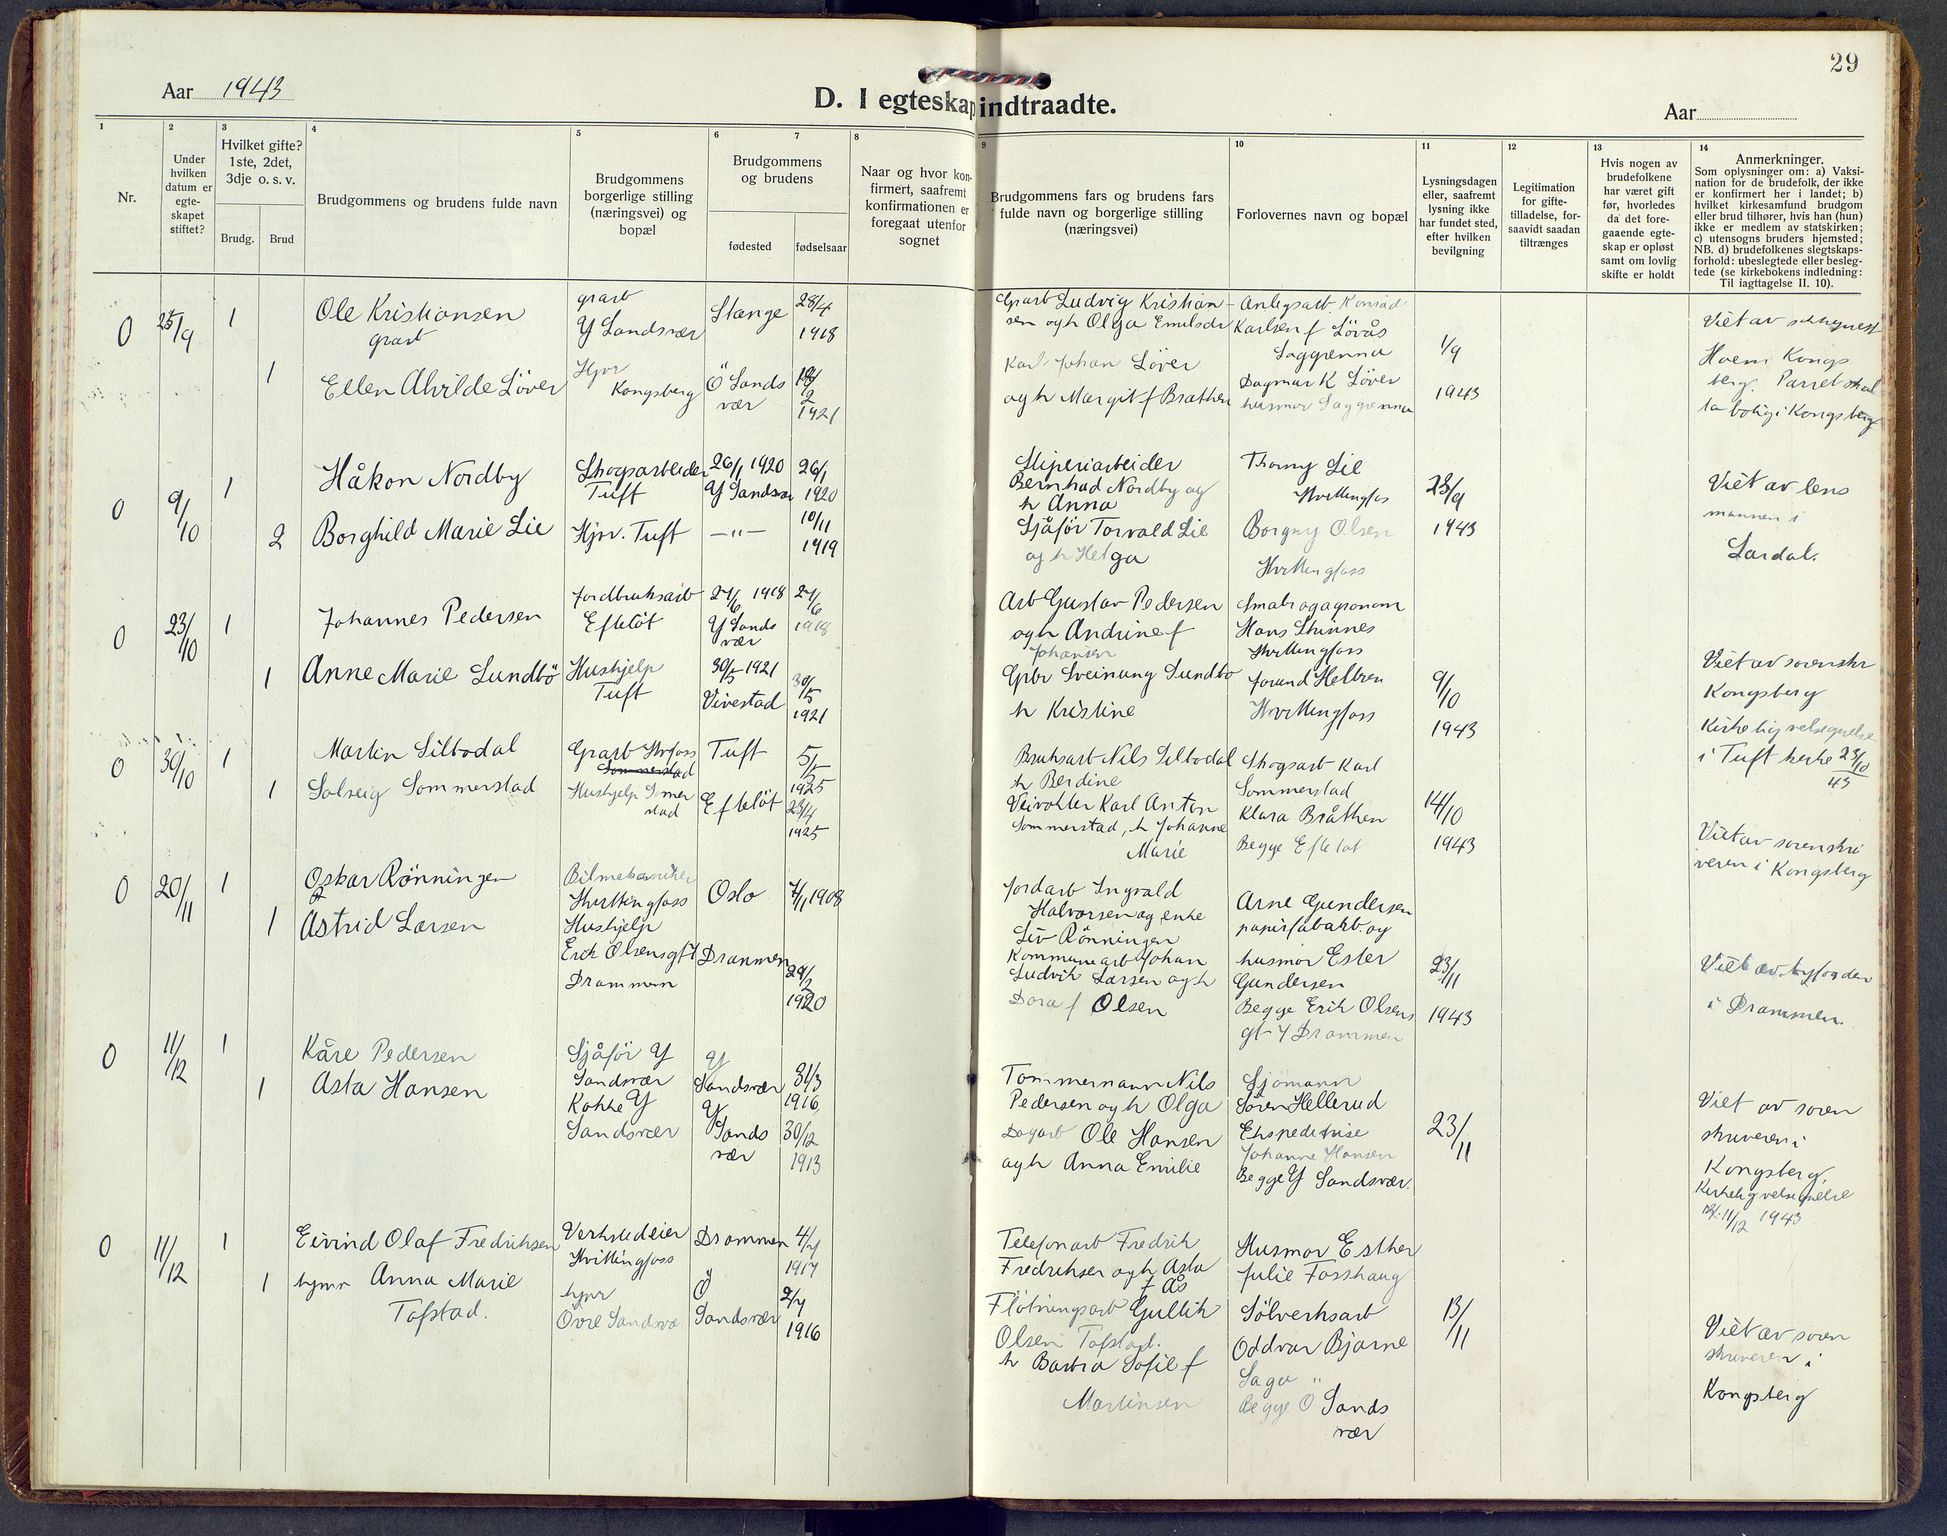 29
Aar 1943
D. I egteskap indtraadte.
Aar
1
2
3
4
5
6
7
8
9
10
11
12
13
14
Nr.
Under
hvilken
datum er
egte-
skapet
stiftet?
Hvilket gifte?
1ste, 2det,
3dje o. s. v.
Brudg.
Brud
Brudgommens og brudens fulde navn
Brudgommens
borgerlige stilling
(næringsvei) og
bopæl
Brudgommens
og brudens
fødested
fødselsaar
Naar og hvor kon-
firmert, saafremt
konfirmationen er
foregaat utenfor
sognet
Brudgommens fars og brudens fars
fulde navn og borgerlige stilling
(næringsvei)
Forlovernes navn og bopæl
Lysningsdagen
eller, saafremt
lysning ikke
har fundet sted,
efter hvilken
bevilgning
Legitimation
for gifte-
tilladelse, for-
saavidt saadan
tiltrænges
Hvis nogen av
brudefolkene
har været gift
før, hvorledes
da det fore-
gaaende egte-
skap er opløst
samt om lovlig
skifte er holdt
Anmerkninger.
Som oplysninger om: a) Vaksi-
nation for de brudefolk, der ikke
er konfirmert her i landet; b)
hvilket kirkesamfund brudgom
eller brud tilhører, hvis han (hun)
ikke er medlem av statskirken;
c) utensogns bruders hjemsted;
NB. d) brudefolkenes slegtskaps-
forhold: ubeslegtede eller besleg-
tede (se kirkebokens indledning:
Til iagttagelse II. 10).
0 25/9 1
Ole Kristiansen
grarb
grarb
Y Sandsvær
Stange
28/4
1918
Grarb Ludvig Kristian-
sen og h Olga Emilsdr
Anlegsarb Konrad
Karlsen f Løvås
Saggrenna
1/9
1943
1 Ellen Alvilde Löver
Hjvr
Kongsberg
Ö Sands
vær
2
1921
Karl Johan Løver
og h Margit f Bråthen
Dagmar K Løver
husmor Saggrenna
Viet av
Hoem Kongs
berg. Parret skal
ta bolig i Kongsberg
0 9/10 1
Håkon Nordby
Skogsarbeider
Tuft
26/1 1920
Y Sandsvær
26/1
1920
Sliperiarbeider
Bernhad Nordby og
h Anna
Thorny Lie
Hvittingfos
28/9
1943
2 Borghild Marie Lie
Hjvr. Tuft
—"—
10/11
1919
Sjåfør Torvald Lie
og h Helga
Borgny Olsen
Hvittingfoss
Viet av lens
mannen i
Lardal.
0 23/10 1
Johannes Pedersen
Jordbruksarb
Efteløt
24/6 1918
Y Sands
vær
24/6
1918
Arb Gustav Pedersen
og h Andrine f
Johansen
Småbrogagronom
Hans Skinnes
Hvittingfoss
1 Anne Marie Lundbö
Hushjelp
Tuft
30/5 1921
Vivestad
30/5
1921
Gbr Sveinung Lundbö
h Kristine
Jorund Hellren
Hvittingfoss
9/10
1943
Viet av sorenskr
Kongsberg
Kirkelig velsignelse
i Tuft kirke 23/10
43
0 30/10 1
Martin Silbodal
Grarb Hvfoss
Sommerstad
Tuft
5/5
1925
Bruksarb Nils Silbodal
h Berdine
Skogsarb Karl
Sommerstad
1 Solveig Sommerstad
Hushjelp Somer
stad
Efteløt
23/4
1925
Veivokter Karl Anton
Sommerstad, h Johanne
Marie
Klara Bråthen
Begge Efteløt
14/10
1943
Viet av sorenskri
veren i Kongsberg
0 20/11 1
Oskar Rönningen
Bilmekaniker
Hvittingfoss
Oslo
7/11 1908
Jordarb Ingvald
Halvorsen og enke
Liv Rönningen
Arne Gundersen
papirfabarb. og
1 Astrid Larsen
Hushjelp
Erik Olsensgt 4
Drammen
Drammen
29/2
1920
Kommunearb Johan
Ludvik Larsen og h
Dora f Olsen
husmor Ester
Gundersen
Begge Erik Olsens
gt 4 Drammen
23/11
1943
Viet av byfogden
i Drammen.
0 11/12 1
Kåre Pedersen
Sjåfør Y
Sandsvær
Y
Sandsvær
31/3
1916
Tømmermann Nils
Pedersen og h Olga
Sjömann
Søren Hellerud
1 Asta Hansen
Kokke Y
Sandsvær
Y
Sands
vær
30/12
1913
Dagarb Ole Hansen
og h Anna Emilie
Ekspeditrise
Johanne Hansen
Begge Y Sandsvær.
23/11
Viet av soren
skriveren i
Kongsberg,
Kirkelig velsignelse
11/12 1943
0 11/12 1
Eivind Olaf Fredriksen
Verkstedeier
Hvittingfoss
Drammen
4/4
1917
Telefonarb Fredrik
Fredriksen og h Asta
f Ås
Husmor Esther
Julie Fosshaug
1 hjmr Anna Marie
Tofstad.
hjmr
Övre Sandsvæ
Ö
Sandsvær
2/4
1916
Fløtningsarb Gullik
Olsen Tofstad.
h Barbra Sofie f
Martinsen
Sølverksarb
Oddvar Bjarne
Saga "
Begge Ö Sands
vær
13/11
Viet av soren
skriveren i
Kongsberg